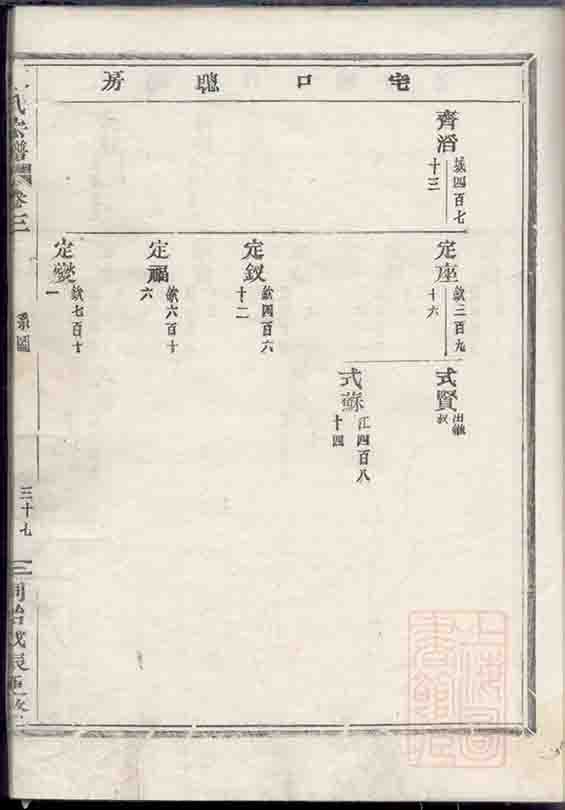 宅口聰房
齊滔
城四百七
十三
定座
欽三百九
十六
定釵
欽四百六
十二
定福
欽六百十
六
定燮
欽七百十
一
式賢
出繼
叔
式蘇
江四百八
十四
氏宗譜
卷三
系圖
三十七
同治戊辰重修
上海圖書館藏